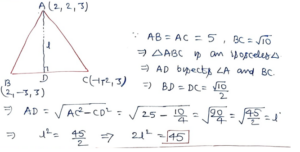 A(2,2,3)
l
B
(2,-3,3)
D
C(-1,2,3)
∵ AB = AC = 5 , BC = √10
⇒ △ABC is an isosceles △
⇒ AD bisects ∠A and BC.
⇒ BD = DC = √10/2
⇒ AD = √(AC²-CD²) = √(25 - 10/4) = √(90/4) = √(45/2) = l
⇒ l² = 45/2 ⇒ 2l² = 45